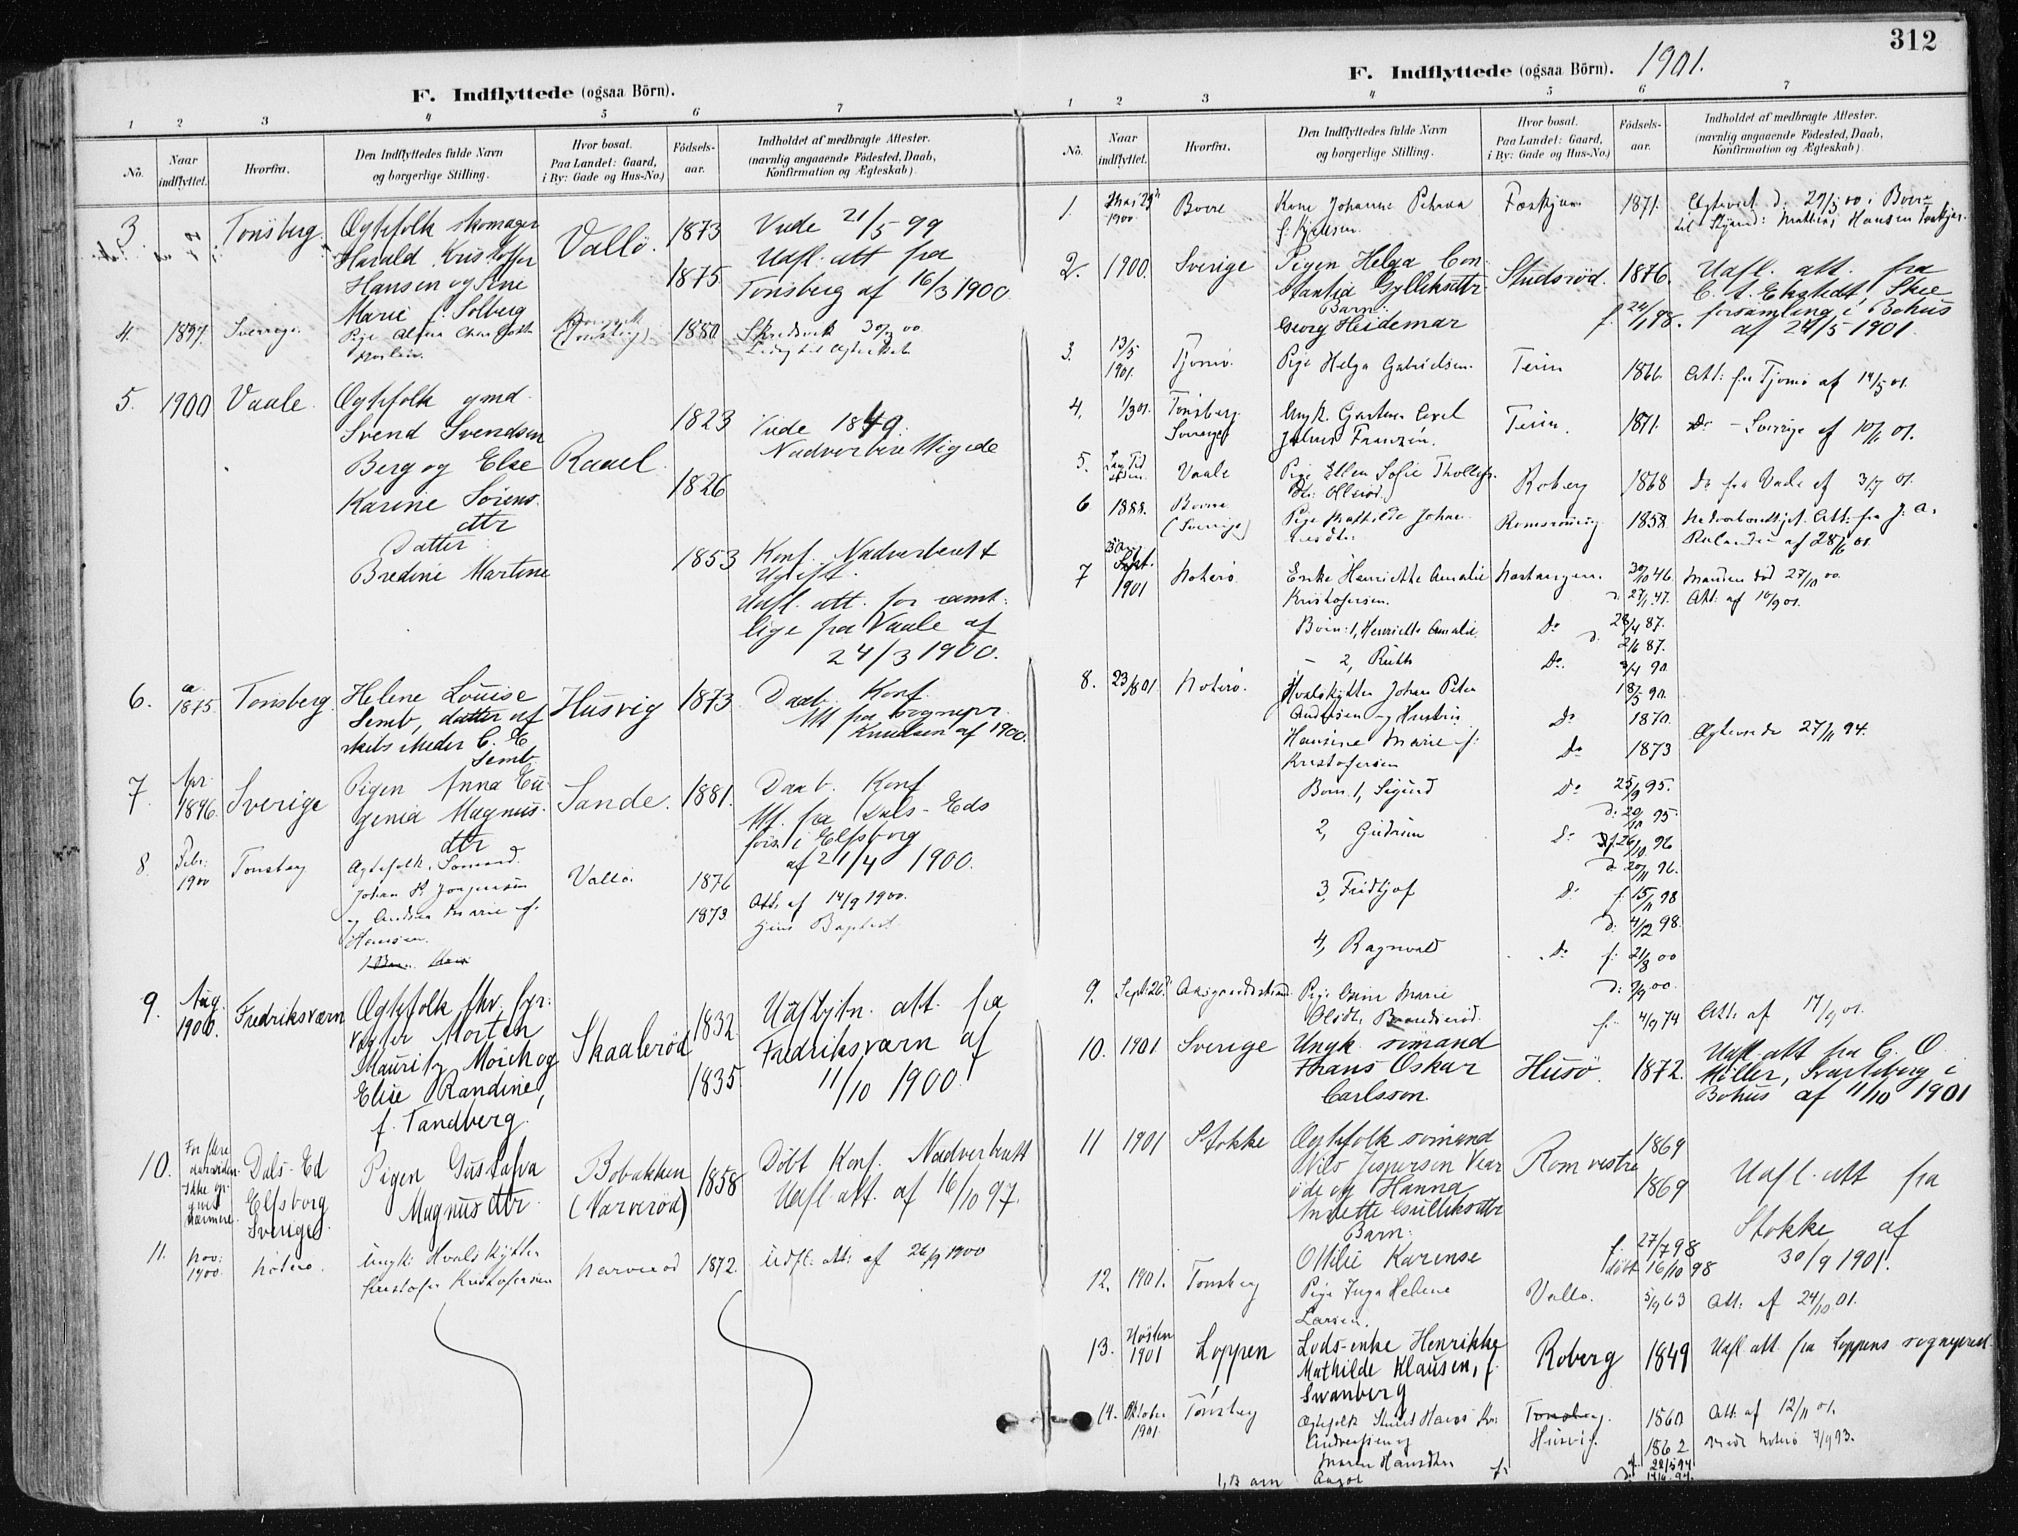 F. Indflyttede (ogsaa Börn).
1 2 3 4 5 6 7
No.
Naar indflyttet.
Hvorfra.
Den Indflyttedes fulde Navn og borgerlige Stilling.
Hvor bosat. Paa Landet: Gaard, i By: Gade og Hus-No.)
Fødsels-aar.
Indholdet af medbragte Attester. (navnlig angaaende Födested, Daab, Konfirmation og Ægteskab)
3 Tönsberg. Ægtefolk skomager Vallö. 1873 Viede 21/5 99
Harald Kristoffer 1875 Uafl. att fra
Hansen og Ane Tönsberg af 16/3 1900.
Marie f. Solberg
4. Sverrige. Pige 1880 30/ 00
5. 1900 Vaale. Ægtefolk gmd. 1823 Viede 1849.
Svend Svendsen Nadverberettigede
Berg og Else Raael. 1826
Karine Sörens-
dtr
Datter: 1853 Konf. Nadverberett
Bredine Martine Ugift.
Uafl. att. for samt-
lige fra Vaale af
24/3 1900.
6. 1875. Tönsberg. Helene Louise Husvig 1873 Daab. Konf.
Semb, datter af Att fra sognepr.
C. E. Knudsen af 1900.
Semb.
7. Apr. 1896. Sverige Pigen Anna Eu- Sande. 1881. Daab. Konf
genia Magnus- Att. fra Dals-Eds
dtr förs. i Elfsborg
af 21/4 1900.
8. Febr: 1900 Tönsberg Ægtefolk. Sömand. Vallö. 1876 Att. af 14/9 1900.
Johan Jörgensen 1873.
og Andrea Marie f. Baptist.
Hansen.
9. Aug. 1900. Fredriksværn Ægtefolk fhv. fyr- Skaaleröd 1832. att. fra
vogter Morten 1835. Fredriksværn af
Mauritz og 11/10 1900.
Elise Randine,
f. Tandberg.
10. For flere
Dals-Ed Pigen Gustafva Bobakken 1858 Döbt Konf. Nadverberett
Elfsborg Magnusdtr (Narveröd) Uafl. att. af 16/10 97.
Sverige
11. Nov: 1900. Nöterö. Ungk: Hvalskytter Narveröd 1872. Udfl. att: af 26/9 1900
Kristofer Kristofersen
312
F. Indflyttede (ogsaa Börn). 1901.
1 2 3 4 5 6 7
No.
Naar indflyttet.
Hvorfra.
Den Indflyttedes fulde Navn og borgerlige Stilling.
Hvor bosat. Paa Landet: Gaard, i By: Gade og Hus-No.)
Fødsels-aar.
Indholdet af medbragte Attester. (navnlig angaaende Födested, Daab, Konfirmation og Ægteskab).
1. 1900. Borre Kone Johanne Petrea 1871. Ægteviet d. 29/5 00 i Borre
til Mathias Hansen
2. 1900. Sverige Pigen Helga Con- Studsröd. 1876. Uafl. att. fra
stantia
Barn: forsamling i Bohus
Georg Heidemar f. 24/1 98. af 24/5 1901.
3. 13/5 1901. Tjømö. Pige Helga Gabrielsen. Teien 1866. Att: fra Tjømö af 14/5 01.
4. 1/3 01. Tönsberg. Sverige Ungk. Gartner Axel Teien. 1871. Do - Sverrige af 10/ 01.
Julius Franzén.
5. Vaale Pige Ellen Sofie Roberg 1868 Do fra Vaale af 3/7 01.
6 1888. Borre (Sverige) Pige Mathilde Johan- 1858. Att. fra J. A.
nesdtr af 28/6 01.
7 Sept. 1901 Nöterö. Enke Henriette Amalie 30/10 46. Manden död 27/10 00.
Kristofersen. d. 27/1 47. Att: af 10/9 01.
Börn: 1, Henriette Amalie Do 28/4 87.
d. 2/6 87.
- 2, Ruth Do. 3/4 90
18/5 90.
8. 23/8 01 Nöterö. Hvalskytter Johan Peter
Andersen og Hustru Do 1870.
Hansine Marie f. Do 1873 Ægteviede 27/11 94.
Kristofersen
Börn 1, Sigurd Do 25/9 95.
d: 20/10 95.
2, Gudrun Do 26/10 96
d: 20/11 96.
3, Fridtjof Do f. 15/11 98
d: 4/12 98.
4, Ragnvald Do f: 21/8 00
d: 9/9 00.
9. Sept. 26. Pige Marie f. 4/9 74 Att: af 17/9 01.
10. 1901. Sverige Ungk sömand Husö. 1872. Uafl. att fra C. O.
Frans Oskar Möller, Svarteborg i
Carlsson. Bohus af 11/10 1901
11 1901 Stokke Ægtefolk sömand Rom vestre 1869 Uafl. att fra
Nils Jespersen Vear 1869 Stokke af
öde og Hanna 30/9 1901.
Annette Gulliksdtr
Barn: f. 27/7 98
Otilie Karense döbt 16/10 98
12. 1901. Tönsberg Pige Inga Helene Vallö. 5/9 63 Att. af 24/10 01.
Larsen.
13. Hösten 1901 Loppen Lods-enke Henrikke Roberg 1849 Uafl. att. fra Loppens sogneprest.
Mathilde Klausen, f.
Swanberg
14. Oktober 1901. Tönsberg Ægtefolk Tönsberg. 1860 Att. af 12/11 01.
Andreasen og Husvik. 1862 Viede Nöterö 7/9 93.
Maren Hansdtr f. 28/5 94
1, Barn Aagot